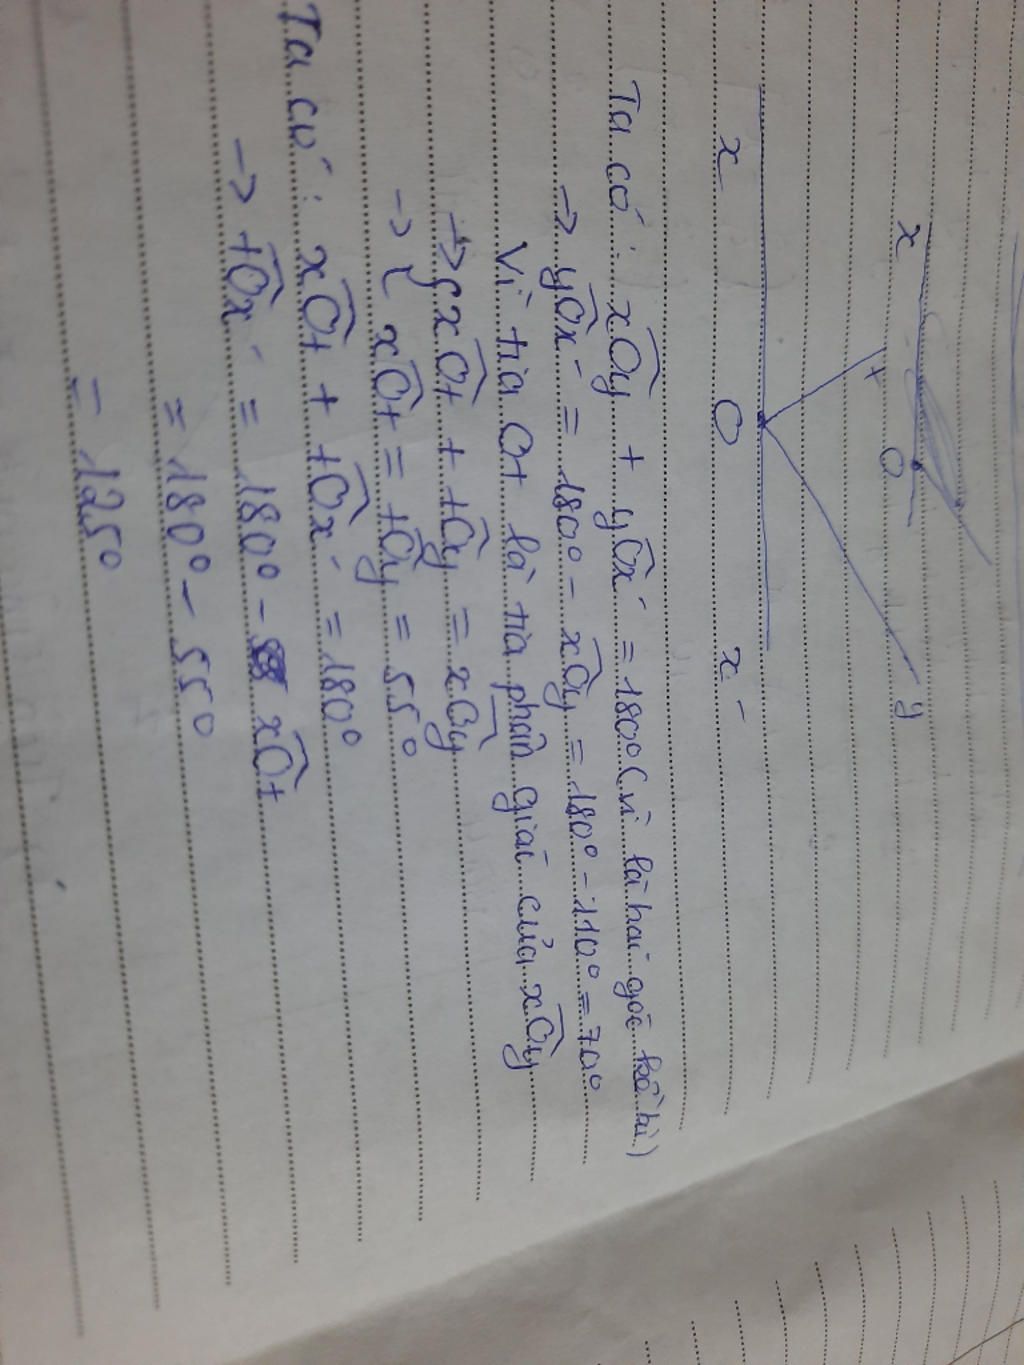 x
t
O
y
x O x'
Ta có: xOy + yOx' = 180° (vì là hai góc kề bù)
-> yOx' = 180° - xOy = 180° - 110° = 70°
Vì tia Ot là tia phân giác của xOy
-> { xOt + tOy = xOy
-> { xOt = tOy = 55°
Ta có: xOt + tOx' = 180°
-> tOx' = 180° - xOt
= 180° - 55°
= 125°